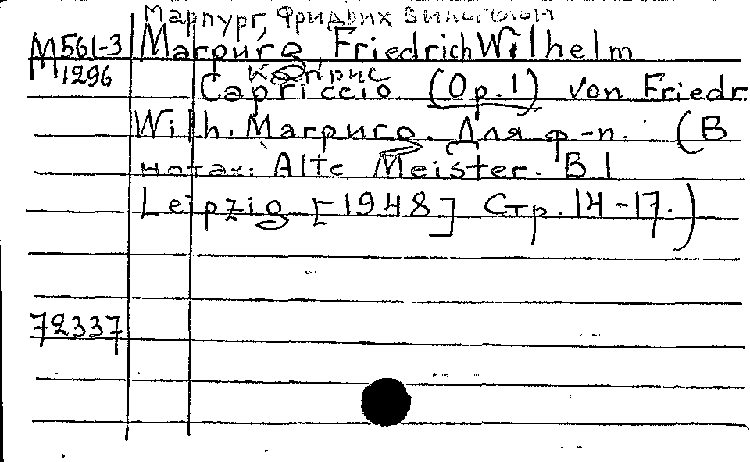 Марпург, Фридрих Вильгельм
М 561-3 Marpurg Friedrich Wilhelm
1296 Каприс
Capriccio (Op.1) von Friedr.
Wilh. Marpurg. Для ф-п. (В
нотах: Alte Meister. B I
Leipzig [1948] Стр. 14-17.)
72337